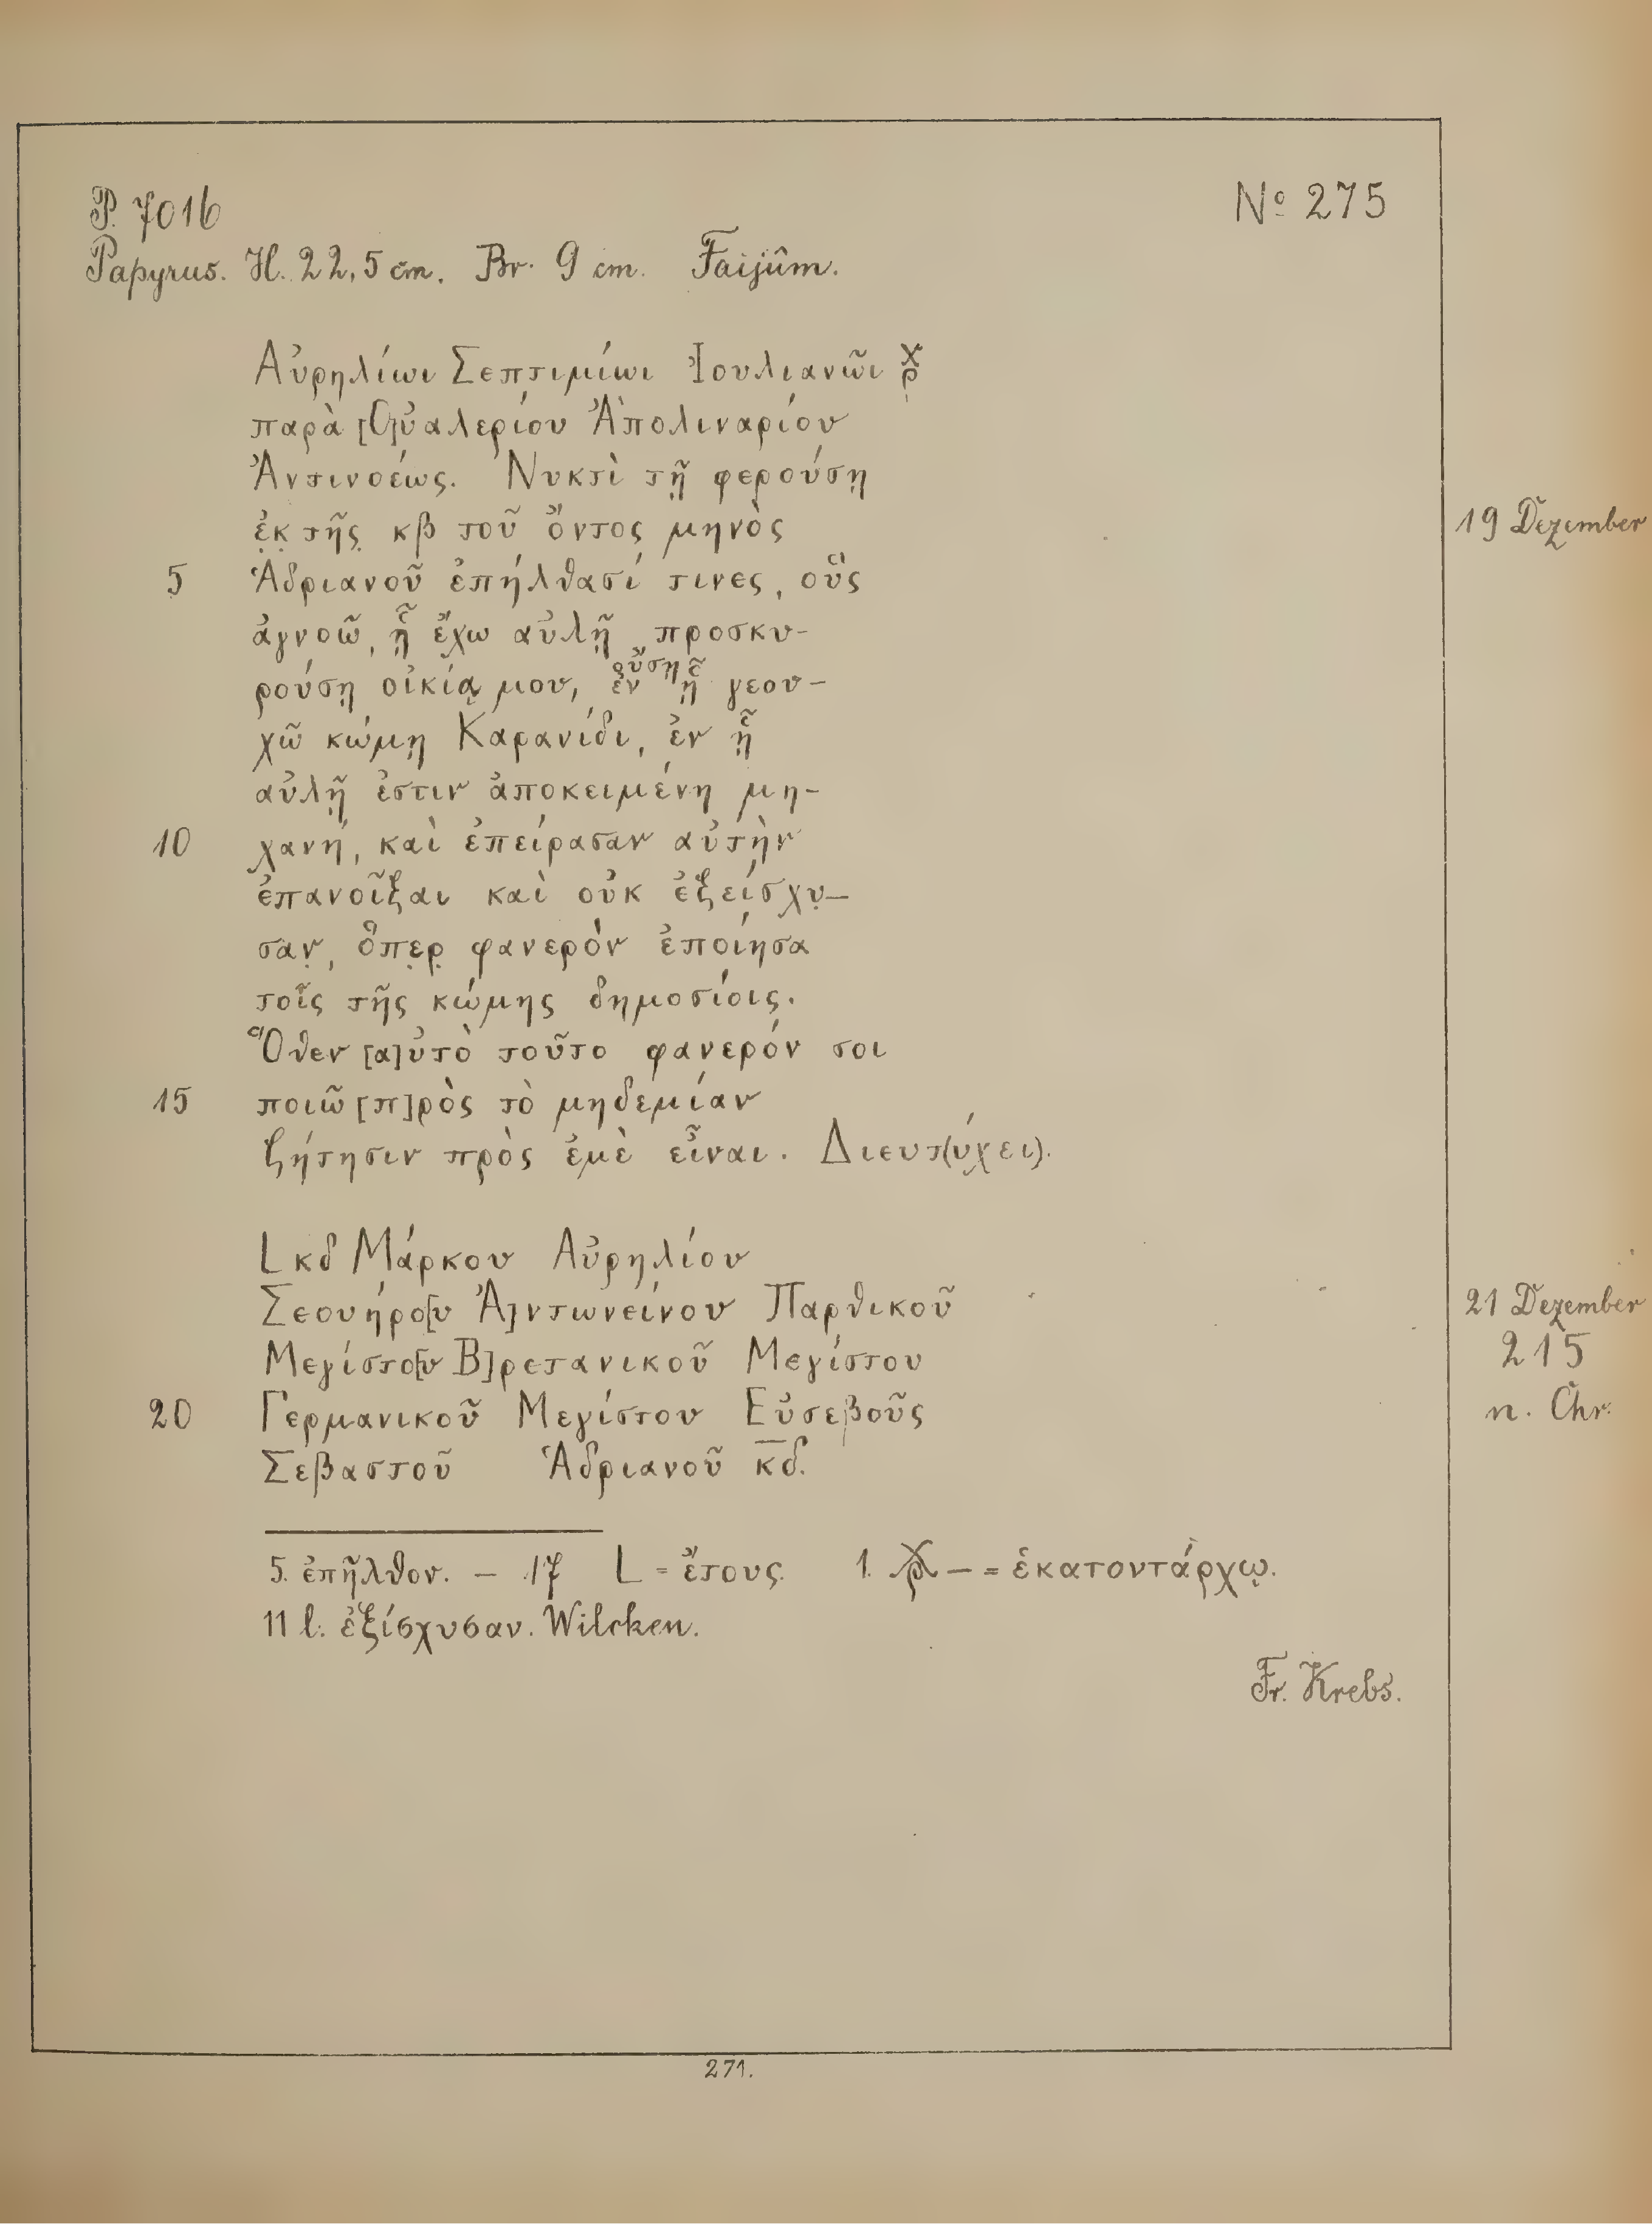 P. 7016
No 275
Papyrus. H. 22,5 cm. Br. 9 cm. Faijûm.
Αὐρηλίωι Σεπτιμίωι Ἰουλιανῶι ⳩
παρὰ [Ο]ὐαλερίου Ἀπολιναρίου
Ἀντινοέως. Νυκτὶ τῇ φερούσῃ
ἐ̣κ̣ τῆς̣ κβ τοῦ ὄντος μηνὸς
19 Dezember
5 Ἁδριανοῦ ἐπήλθασί τινες, οὓς
ἀγνοῶ, ᾗ ἔχω αὐλῇ προσκυ-
ρούσῃ οἰκίᾳ μου, οὔσῃ ἐν ᾗ γεου-
χῶ κώμῃ Καρανίδι, ἐν ᾗ
αὐλῇ ἐστιν ἀποκειμένη μη-
10 χανή, καὶ ἐπείρασαν αὐτὴν
ἐπανοῖξαι καὶ οὐκ ἐξείσχυ̣-
σαν̣, ὅπ̣ερ̣ φανερὸν ἐποίησα
τοῖς τῆς κώμης δημοσίοις.
Ὅθεν [α]ὐτὸ τοῦτο φανερόν σοι
15 ποιῶ [π]ρὸς τὸ μηδεμίαν
ζήτησιν πρὸς ἐμὲ εἶναι. Διευτ(ύχει).
L κδ Μάρκου Αὐρηλίου
Σεουήρο[υ Ἀ]ντωνείνου Παρθικοῦ
21 Dezember
Μεγίστο[υ Β]ρετανικοῦ Μεγίστου
215
20 Γερμανικοῦ Μεγίστου Εὐσεβοῦς
n. Chr.
Σεβαστοῦ Ἁδριανοῦ κ̅δ̅.
5. ἐπῆλθον. – 17 L = ἔτους. 1. ⳩ – = ἑκατοντάρχῳ.
11 l. ἐξίσχυσαν. Wilcken.
Fr. Krebs.
271.